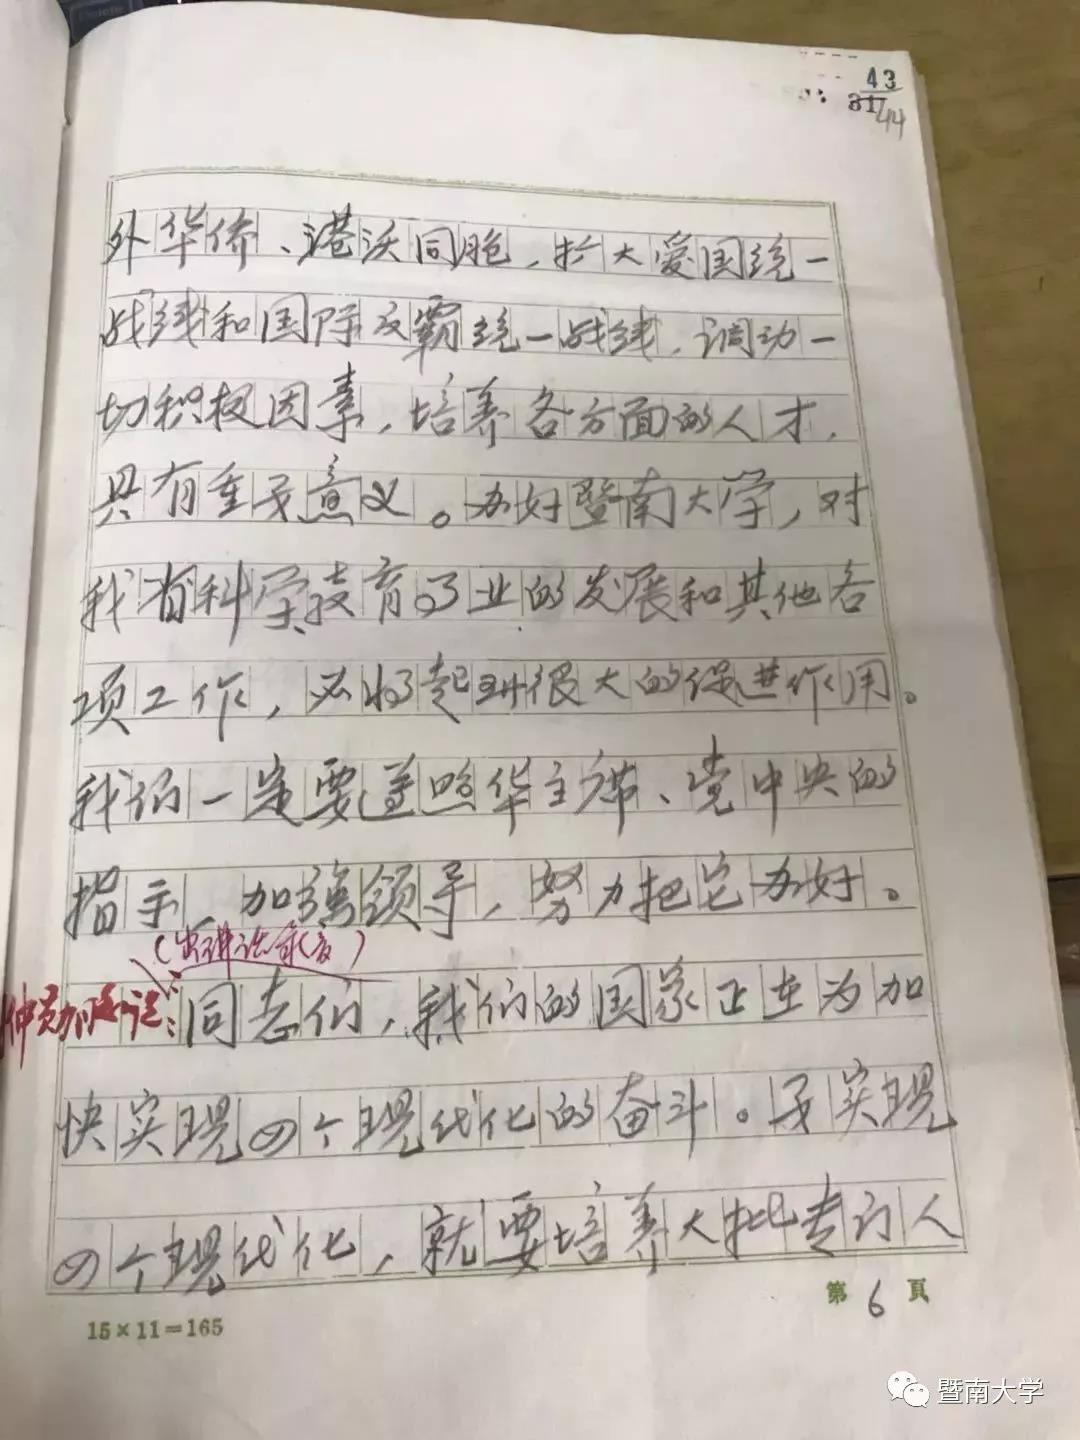 Delete
43
31
44
外华侨、港沃同胞，扩大爱国统一
战线和国际反霸统一战线，调动一
切积极因素，培养各方面的人才，
具有重要意义。办好暨南大学，对
我省科学教育事业的发展和其他各
项工作，必将起到很大的促进作用。
我们一定要遵照华主席、党中央的
指示，加强领导，努力把它办好。
同志们，我们的国家正在为加
快实现四个现代化的奋斗。要实现
四个现代化，就要培养大批专门人
第 6 頁
15×11=165
暨南大学